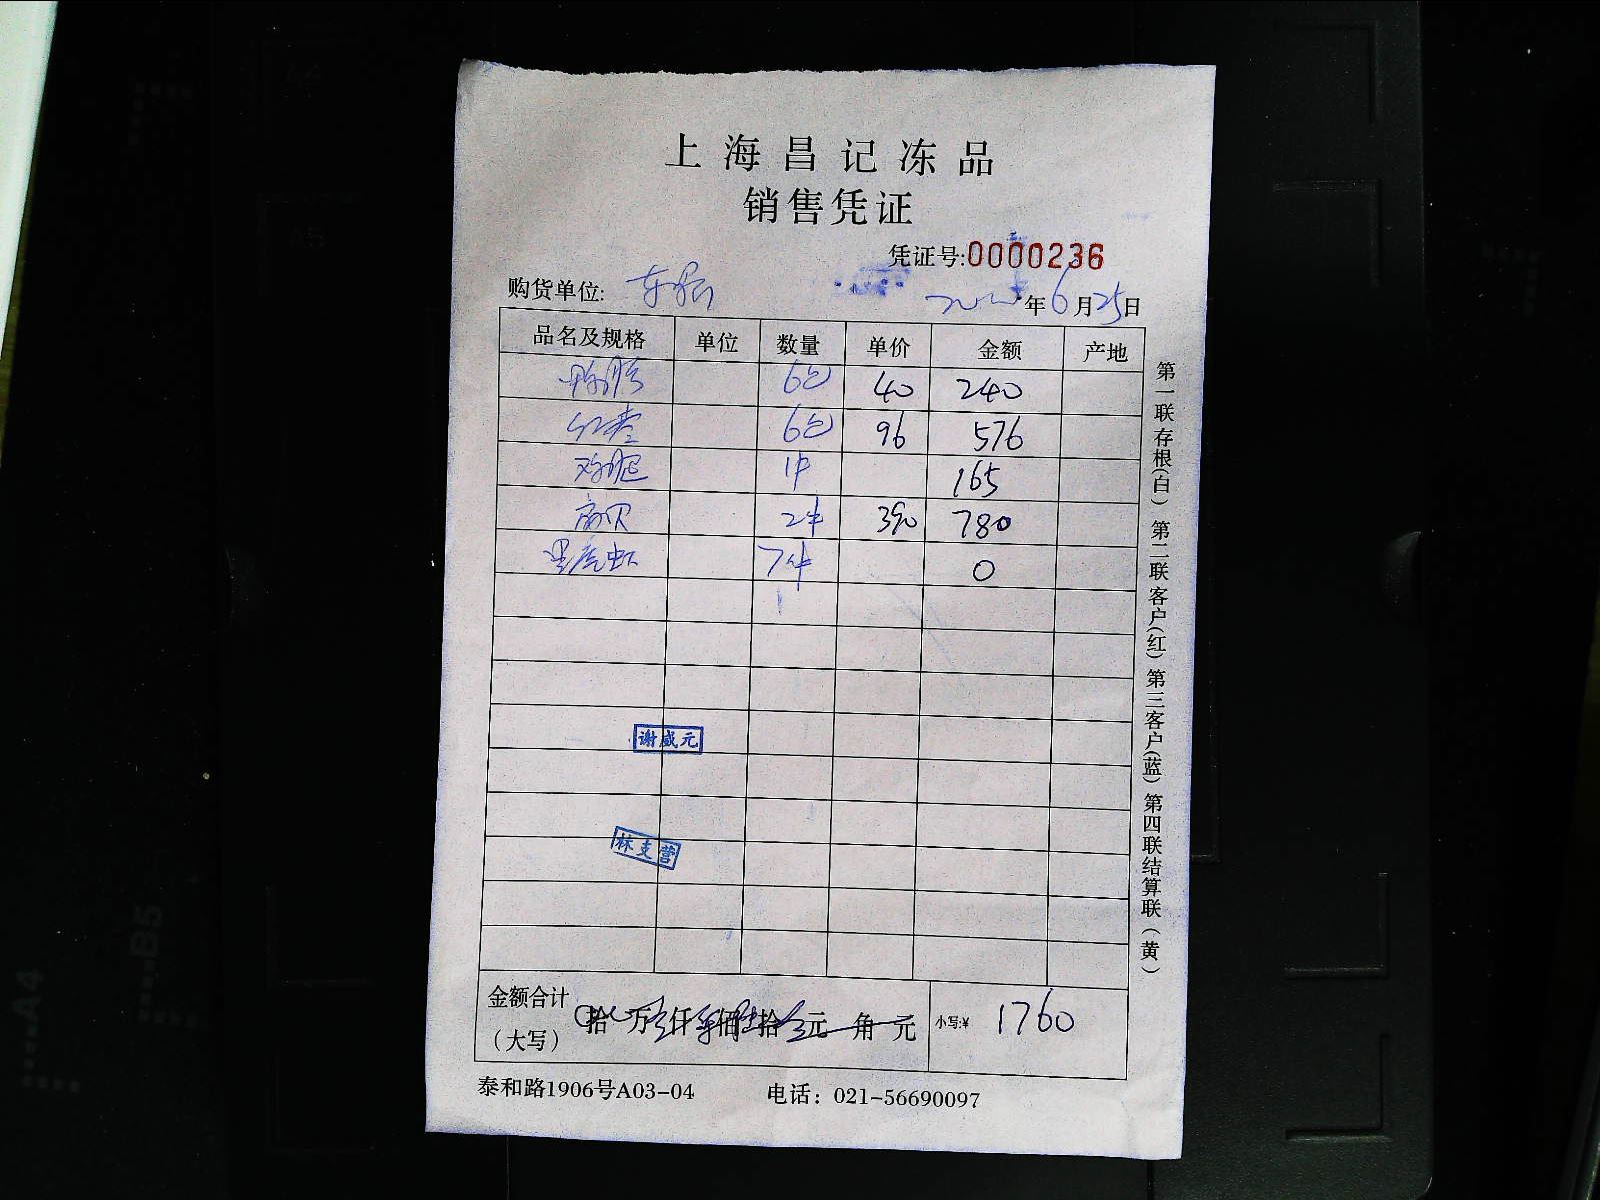 上海昌记冻品
销售凭证
凭证号:0000236
购货单位: 年6月25日
品名及规格 单位 数量 单价 金额 产地
6包 40 240
6包 96 576
1件 165
2件 390 780
7件 0
谢威元
林支营
金额合计
(大写) 拾 万 仟 佰 拾 元 角 元 小写:¥ 1760
泰和路1906号A03-04 电话：021-56690097
第一联存根(白) 第二联客户(红) 第三客户(蓝) 第四联结算联(黄)